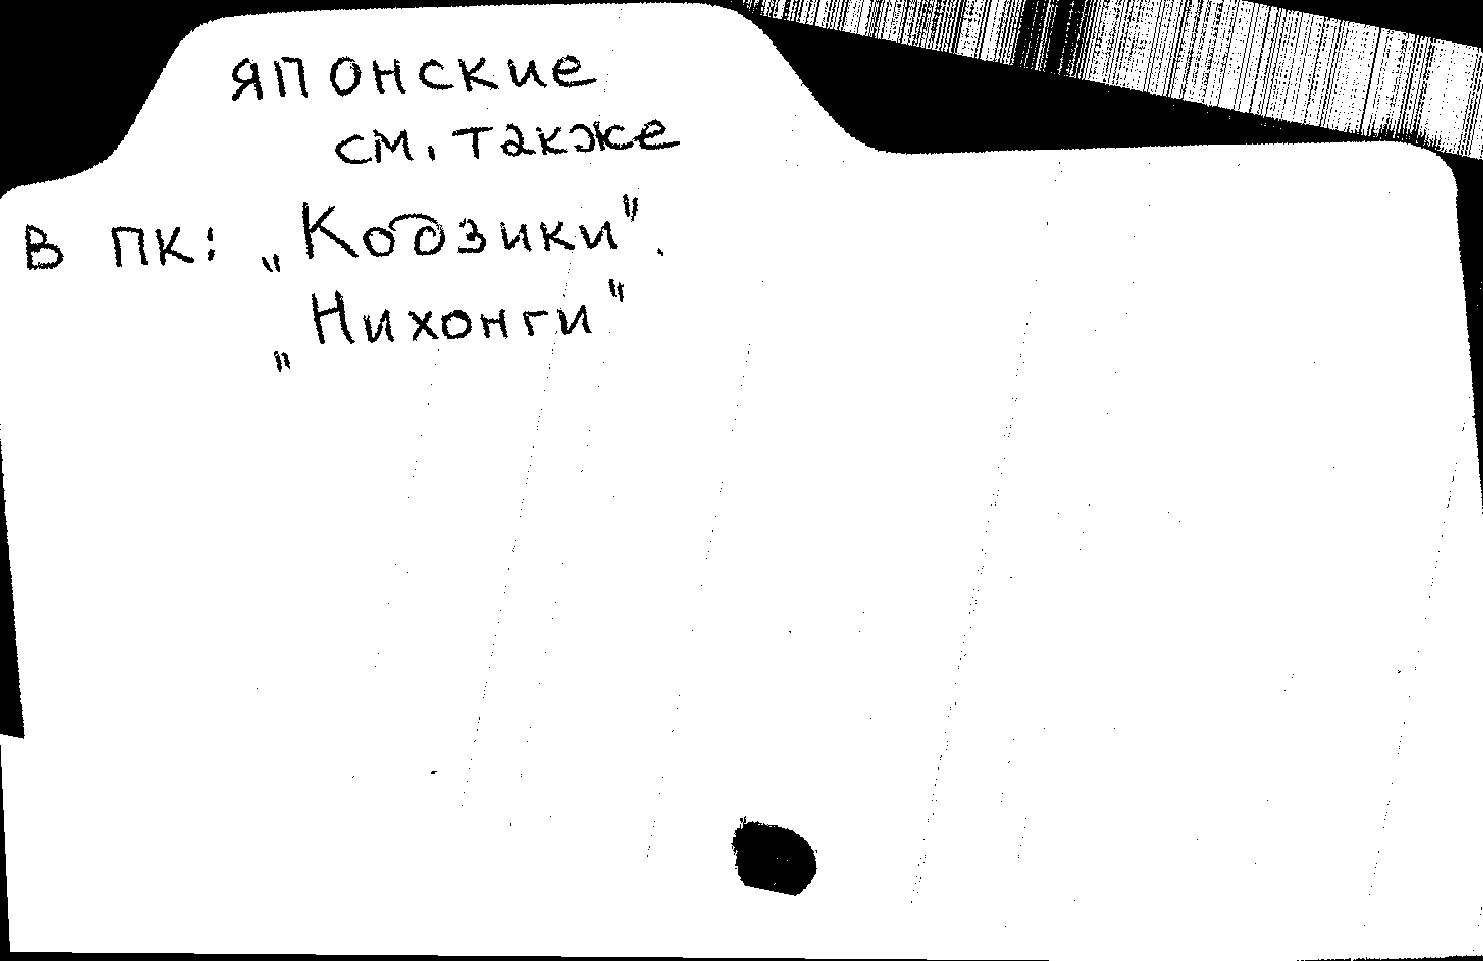 японские
см. также
В ПК: „Кодзики".
„Нихонги"